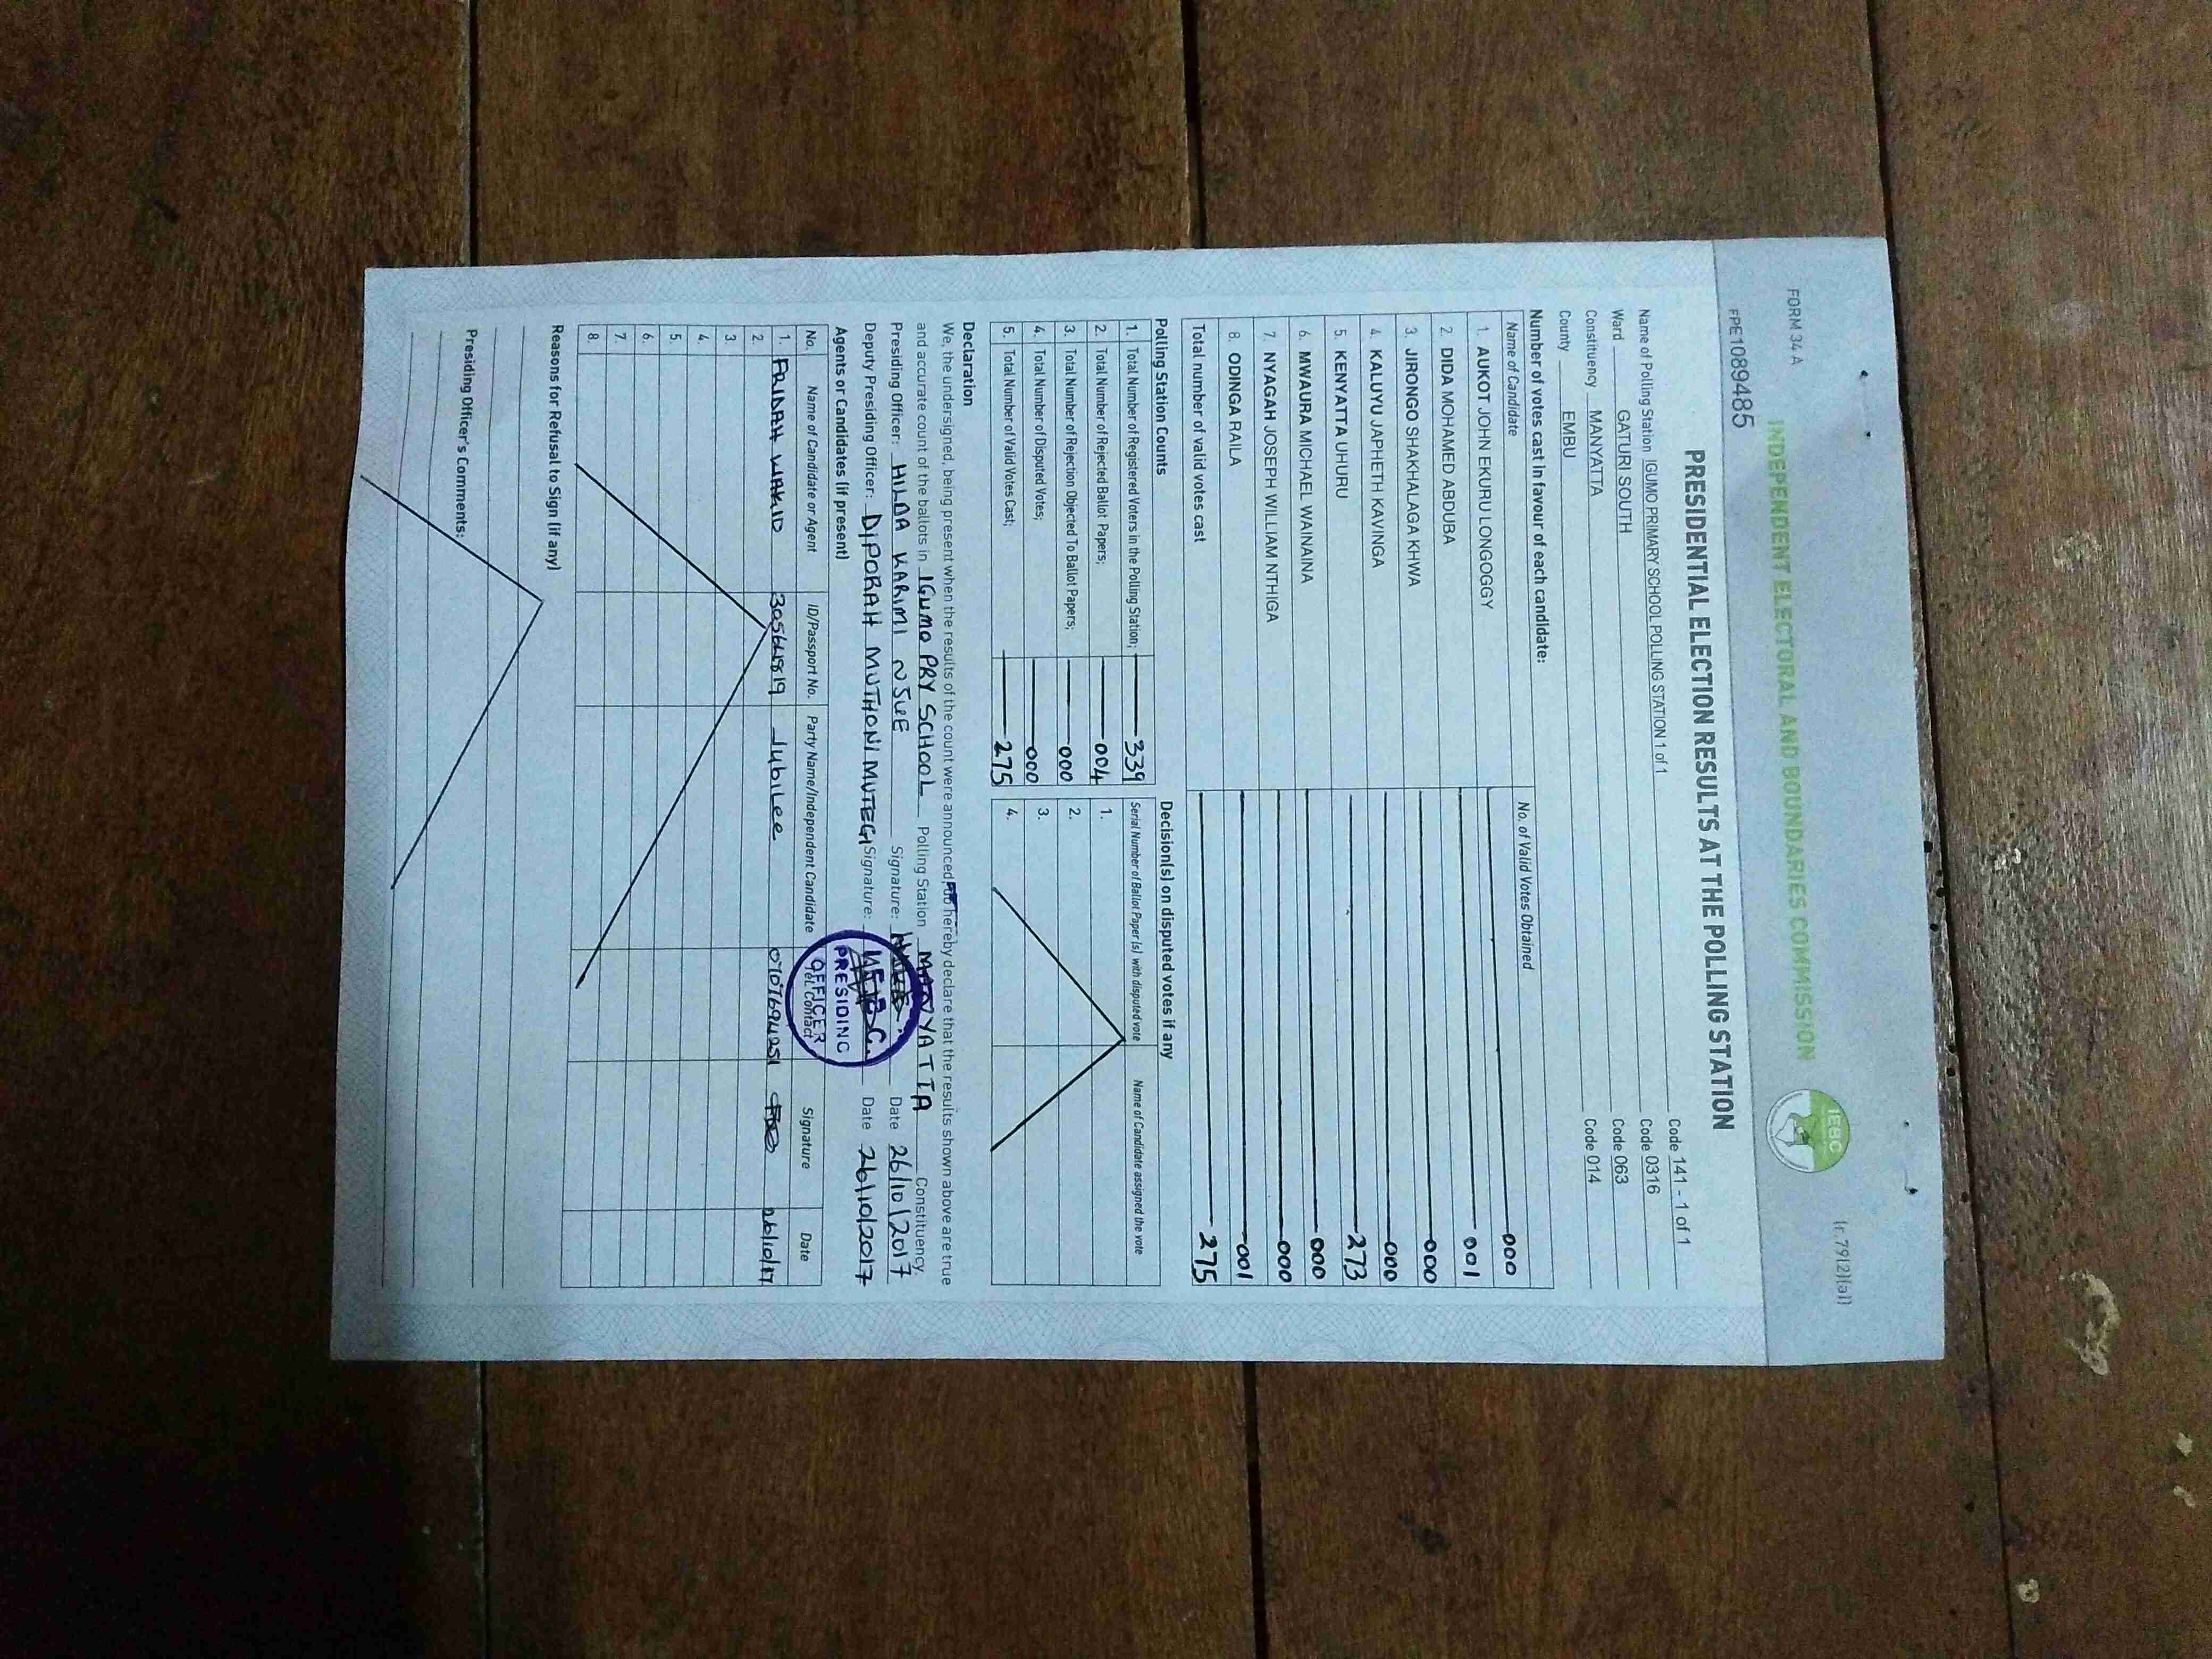 FORM 34 A
(r.79(2)(a))
INDEPENDENT ELECTORAL AND BOUNDARIES COMMISSION
IEBC
FPE1089485
PRESIDENTIAL ELECTION RESULTS AT THE POLLING STATION
Name of Polling Station IGUMO PRIMARY SCHOOL POLLING STATION 1 of 1 Code 141 - 1 of 1
Ward GATURI SOUTH Code 0316
Constituency MANYATTA Code 063
County EMBU Code 014
Number of votes cast in favour of each candidate:
Name of Candidate No. of Valid Votes Obtained
1. AUKOT JOHN EKURU LONGOGGY 000
2. DIDA MOHAMED ABDUBA 001
3. JIRONGO SHAKHALAGA KHWA 000
4. KALUYU JAPHETH KAVINGA 000
5. KENYATTA UHURU 273
6. MWAURA MICHAEL WAINAINA 000
7. NYAGAH JOSEPH WILLIAM NTHIGA 000
8. ODINGA RAILA 001
Total number of valid votes cast 275
Polling Station Counts
1. Total Number of Registered Voters in the Polling Station; 339
2. Total Number of Rejected Ballot Papers; 004
3. Total Number of Rejection Objected To Ballot Papers; 000
4. Total Number of Disputed Votes; 000
5. Total Number of Valid Votes Cast; 275
Decision(s) on disputed votes if any
Serial Number of Ballot Paper (s) with disputed vote Name of Candidate assigned the vote
1.
2.
3.
4.
Declaration
We, the undersigned, being present when the results of the count were announced, do hereby declare that the results shown above are true
and accurate count of the ballots in IGUMO PRY SCHOOL Polling Station MANYATTA Constituency.
Presiding Officer: HILDA KARIMI NJUE Signature: Date 26/10/2017
Deputy Presiding Officer: DIPORAH MUTHONI MUTEGI Signature: Date 26/10/2017
I.E.B.C.
PRESIDING
OFFICER
Agents or Candidates (if present)
No. Name of Candidate or Agent ID/Passport No. Party Name/Independent Candidate Tel. Contact Signature Date
1. FRIDAH Jubilee 26/10/17
2
3
4
5
6.
7.
8.
Reasons for Refusal to Sign (if any)
Presiding Officer's Comments: